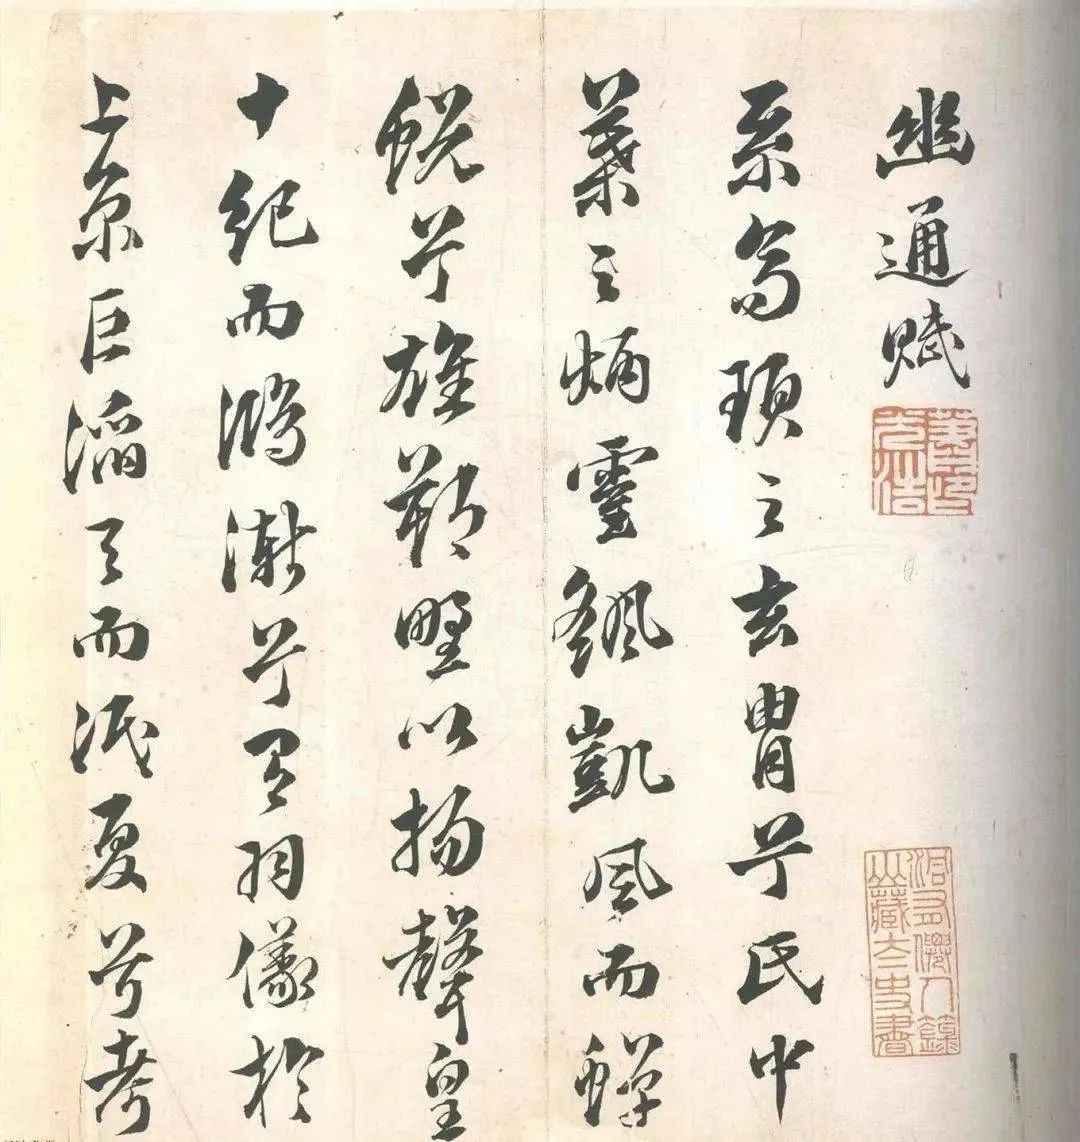 幽通賦
系高頊之玄冑兮氏中
葉之炳靈飖凱風而蟬
蛻兮雄朔野以揚聲皇
十紀而鴻漸兮有羽儀於
上京巨滔天而泯夏兮考
山藏太史書